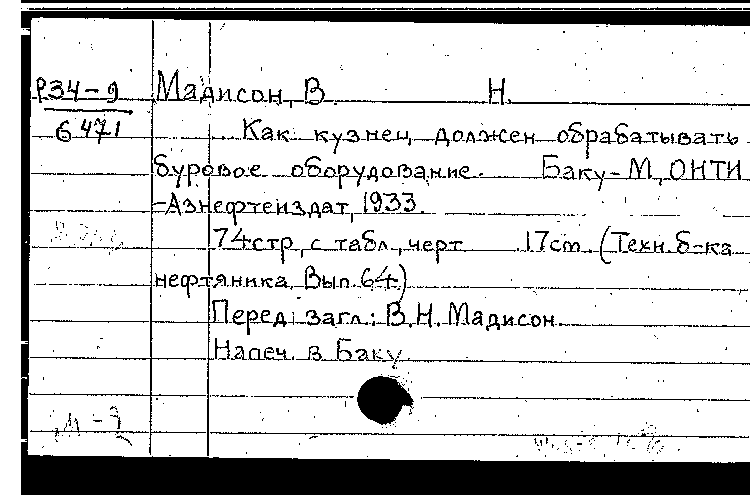 Р34-9 Мадисон, В. Н.
6471 Как кузнец должен обрабатывать
буровое оборудование. Баку-М, ОНТИ
-Азнефтеиздат, 1933.
74стр, с табл., черт 17cm. (Техн. б-ка
нефтяника, Вып. 64)
Перед загл.: В.Н. Мадисон.
Напеч. в Баку.